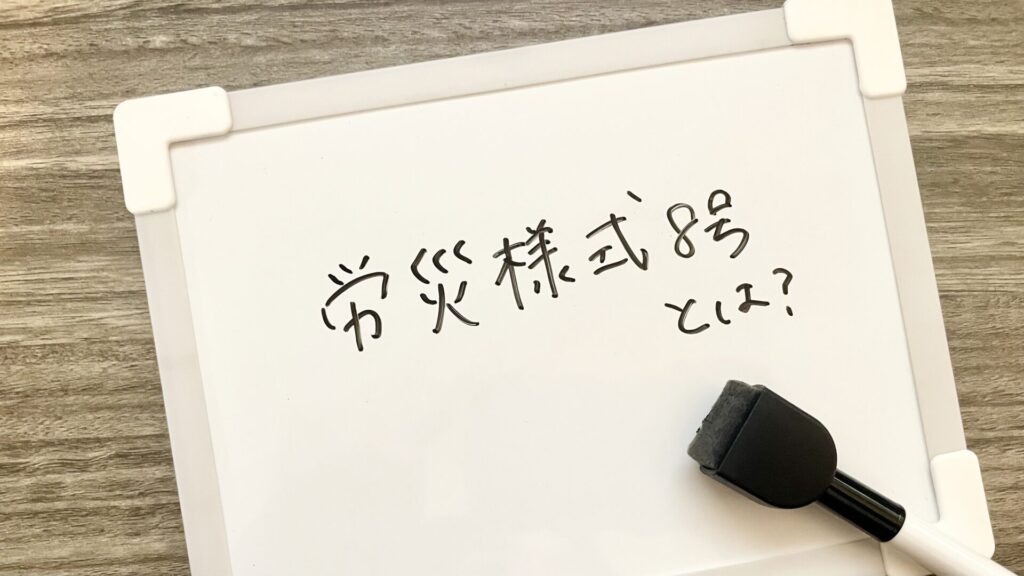 労災様式8号
とは?